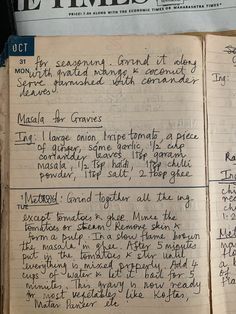 THE TIMES
PRICE 7.00 ALONG WITH THE ECONOMIC TIMES OR MAHARASHTRA TIMES*
OCT
31
MON
for seasoning. Grind it along
with grated mango & coconut
Serve garnished with coriander
leaves.
Masala for Gravies
Ing: 1 large onion, 1 ripe tomato, a piece
of ginger, some garlic, 1/2 cup
coriander leaves, 1 tsp garam
masala, 1/2 tsp haldi, 1 tsp chilli
powder, 1 tsp salt, 2 tbsp ghee
1
TUE
Method: Grind together all the ing.
except tomatoes & ghee. Mince the
tomatoes or steam. Remove skin &
form a pulp. In a slow flame brown
the masala in ghee. After 5 minutes
put in the tomatoes & stir until
everything is mixed properly. Add 4
cups of water & let it boil for 5
minutes. This gravy is now ready
for most vegetables like Koftas,
Matar Paneer etc
Ing:
Ing
Met